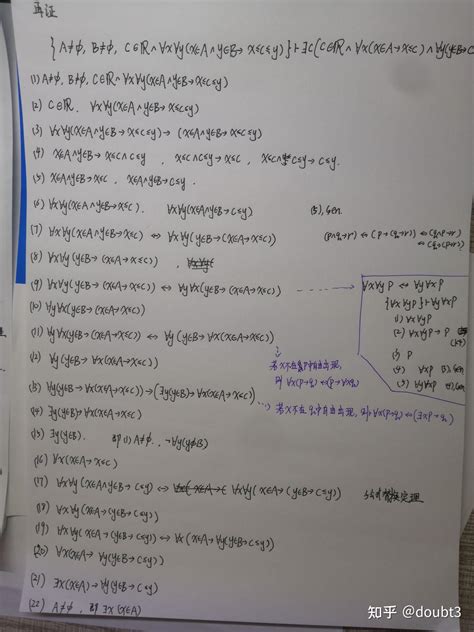 再证
{A≠∅, B≠∅, C∈ℝ∧∀x∀y(x∈A∧y∈B→x≤c≤y)}⊢∃c(C∈ℝ∧∀x(x∈A→x≤c)∧∀y(y∈B→c
(1) A≠∅, B≠∅, C∈ℝ∧∀x∀y(x∈A∧y∈B→x≤c≤y)
(2) C∈ℝ. ∀x∀y(x∈A∧y∈B→x≤c≤y)
(3) ∀x∀y(x∈A∧y∈B→x≤c≤y)→(x∈A∧y∈B→x≤c≤y)
(4) x∈A∧y∈B→x≤c∧c≤y , x≤c∧c≤y→x≤c , x≤c∧c≤y→c≤y.
(5) x∈A∧y∈B→x≤c , x∈A∧y∈B→c≤y.
(6) ∀x∀y(x∈A∧y∈B→x≤c). ∀x∀y(x∈A∧y∈B→c≤y) (5), Gen
(7) ∀x∀y(x∈A∧y∈B→x≤c) ↔ ∀x∀y(y∈B→(x∈A→x≤c)) (p∧q→r)↔(p→(q→r))↔(q∧p→r)
↔(q→(p→r))
(8) ∀x∀y(y∈B→(x∈A→x≤c)) .
(9) ∀x∀y(y∈B→(x∈A→x≤c)) ↔ ∀y∀x(y∈B→(x∈A→x≤c))
∀x∀yP ↔ ∀y∀xP
{∀x∀yP}⊢∀y∀xP
1) ∀x∀yP
(2) ∀x∀yP→P
(3) P
(4) ∀xP (3), Gen
(5) ∀y∀xP (4), Gen
(10) ∀y∀x(y∈B→(x∈A→x≤c))
(11) ∀y∀x(y∈B→(x∈A→x≤c)) ↔ ∀y(y∈B→∀x(x∈A→x≤c))
(12) ∀y(y∈B→∀x(x∈A→x≤c))
若x不在P中自由出现,
则 ∀x(p→q)↔(p→∀xq)
(13) ∀y(y∈B→∀x(x∈A→x≤c))→(∃y(y∈B)→∀x(x∈A→x≤c))
(14) ∃y(y∈B)→∀x(x∈A→x≤c)
若x不在q中自由出现, 则∀x(p→q)↔(∃xp→q)
(15) ∃y(y∈B). 即(1) A≠∅. ¬∀y(y∉B)
(16) ∀x(x∈A→x≤c)
(17) ∀x∀y(x∈A∧y∈B→c≤y) ↔ ∀x∀y(x∈A→(y∈B→c≤y))
(18) ∀x∀y(x∈A→(y∈B→c≤y))
(19) ∀x∀y(x∈A→(y∈B→c≤y)) ↔ ∀x(x∈A→∀y(y∈B→c≤y))
(20) ∀x(x∈A→∀y(y∈B→c≤y))
(21) ∃x(x∈A)→∀y(y∈B→c≤y)
(22) A≠∅, 即 ∃x(x∈A)
知乎 @doubt3